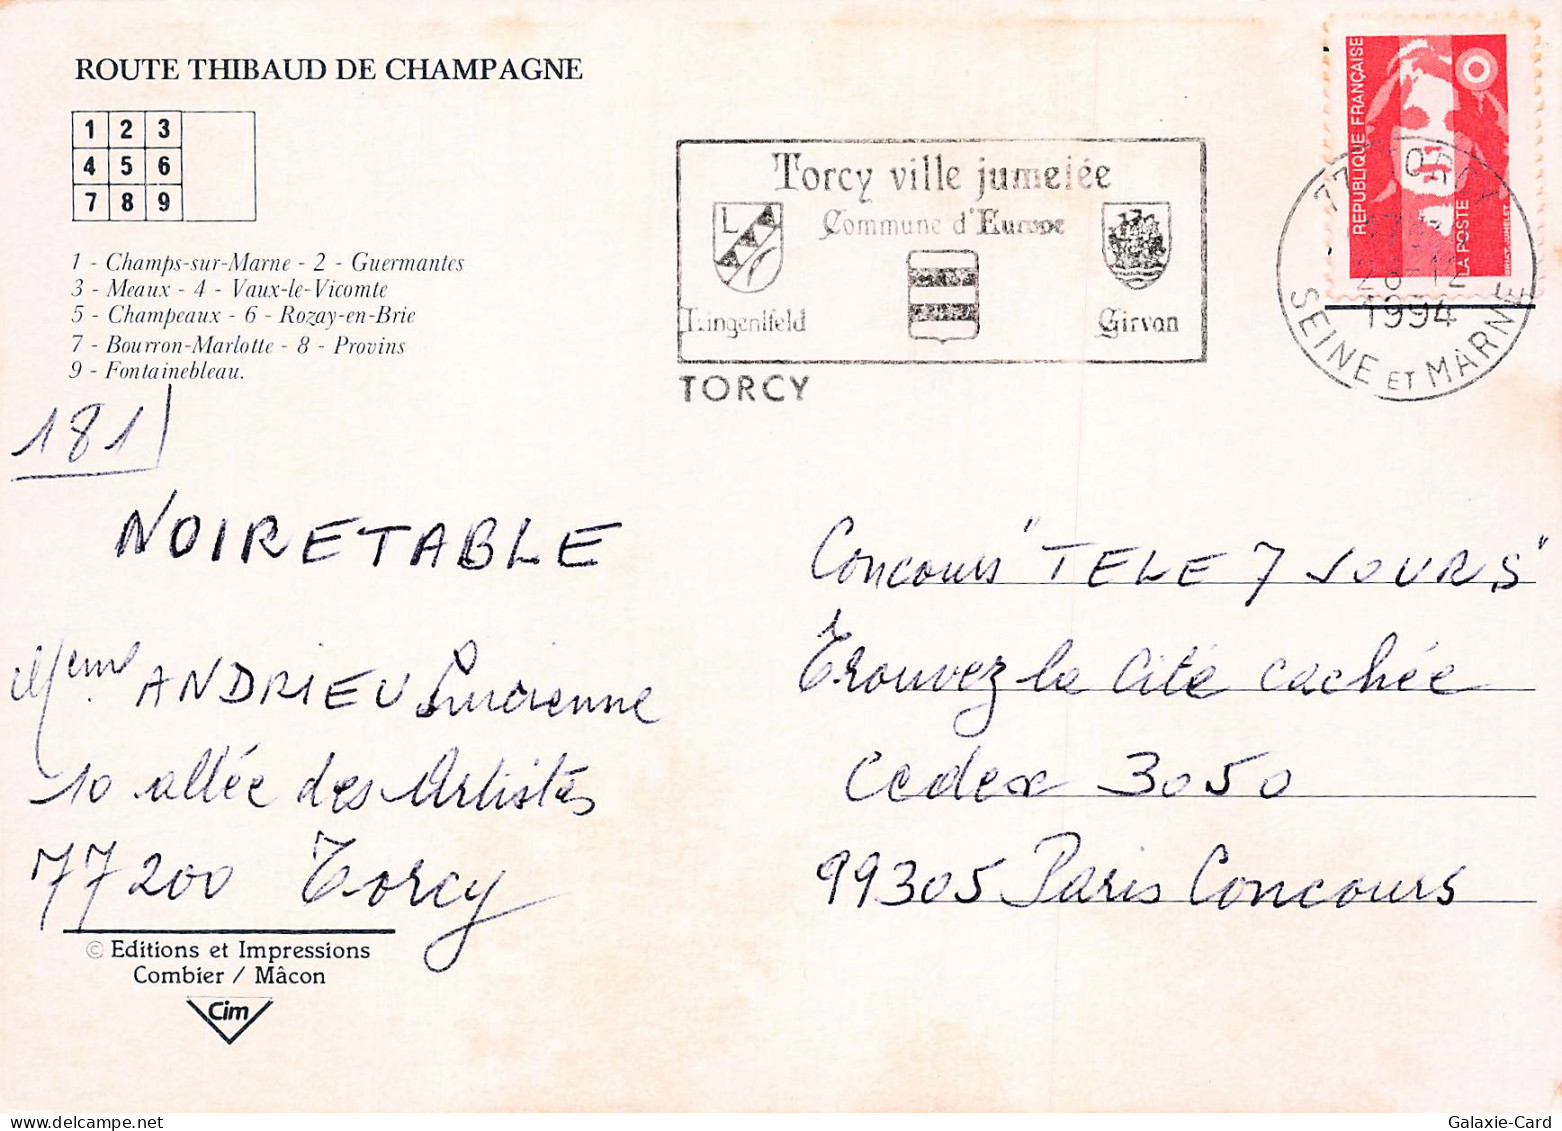 ROUTE THIBAUD DE CHAMPAGNE
1 2 3
4 5 6
7 8 9
1 - Champs-sur-Marne - 2 - Guermantes
3 - Meaux - 4 - Vaux-le-Vicomte
5 - Champeaux - 6 - Rozay-en-Brie
7 - Bourron-Marlotte - 8 - Provins
9 - Fontainebleau.
181
NOIRETABLE
Meme ANDRIEU Lucienne
10 allée des Artistes
77200 Torcy
© Editions et Impressions
Combier / Mâcon
Cim
Torcy ville jumelée
Commune d'Europe
L
Lingenfeld
Girvan
TORCY
REPUBLIQUE FRANÇAISE
LA POSTE
77 TORCY
28-12
1994
SEINE ET MARNE
Concours "TELE 7 JOURS"
Trouvez la Cité cachée
Cedex 3050
99305 Paris Concours
Galaxie-Card